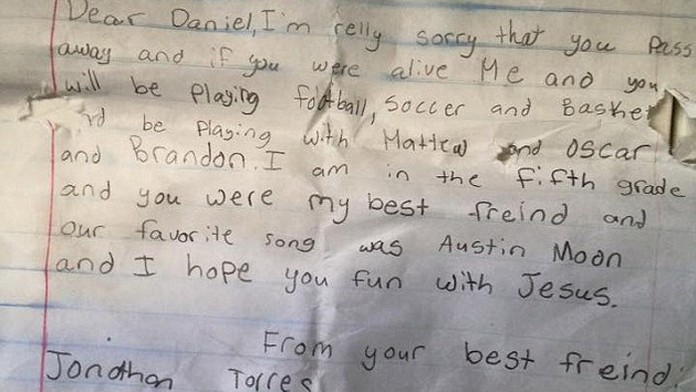 Dear Daniel, I'm relly sorry that you Pass
away and if you were alive Me and you
will be Playing football, soccer and Basket
be Playing with Mattew and Oscar
and Brandon. I am in the fifth grade
and you were my best freind and
our favorite song was Austin Moon
and I hope you fun with Jesus.
From your best freind:
Jonathan Torres